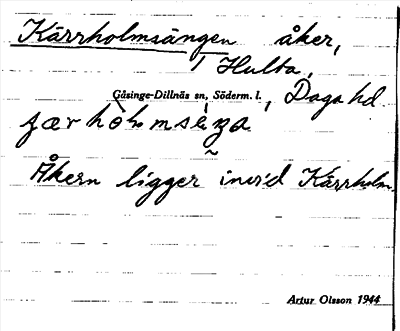 Kärrholmsängen åker,
i Hulta,
Gåsinge-Dillnäs sn, Söderm. l., Daga hd
Åkern ligger invid Kärrholm.
Artur Olsson 1944